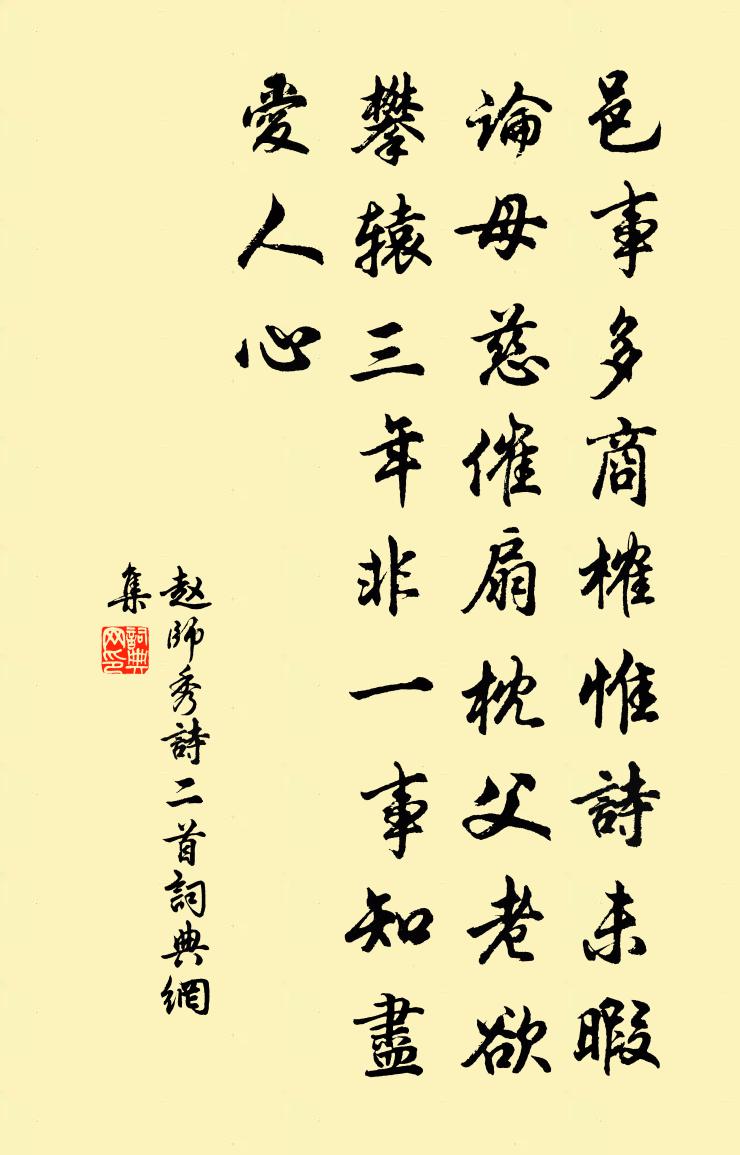 邑事多商榷惟詩未暇
論母慈催扇枕父老欲
攀辕三年非一事知盡
愛人心
赵師秀詩二首詞典網
集
詞典网印